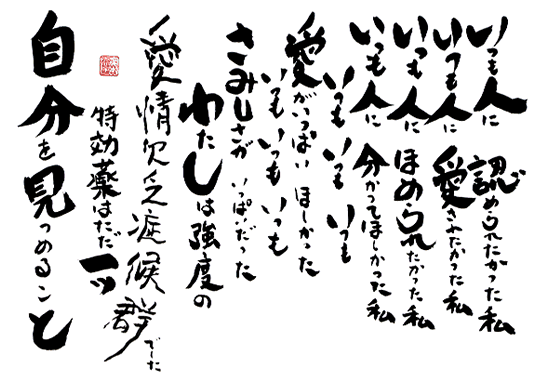 いつも人に 認められたかった私
いつも人に 愛されたかった私
いつも人に ほめられたかった私
いつも人に 分かってほしかった私
いつも いつも いつも
愛がいっぱい ほしかった
いつも いつも いつも
さみしさが いっぱいだった
わたしは強度の
愛情欠乏症候群でした
特効薬はただ一ツ
自分を見つめること